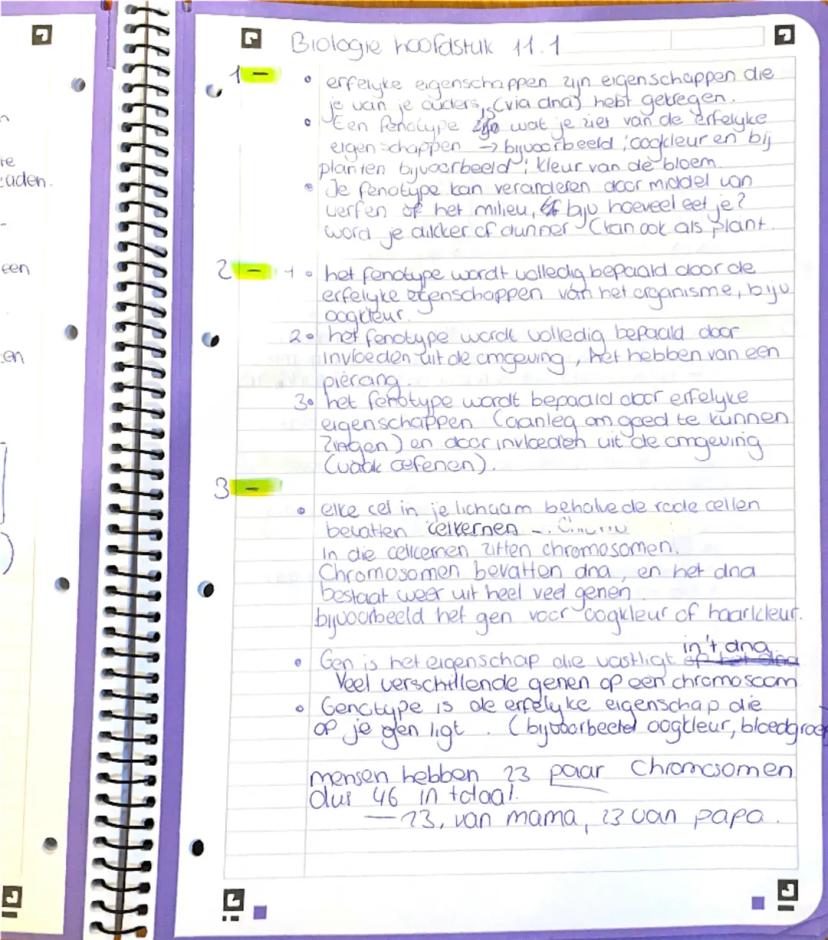 Biologie hoofdstuk 11.1
1 - • erfelyke eigenschappen zijn eigenschappen die
je van je ouders (via dna) hebt gekregen.
• Een fenotype is wat je ziet van de erfelyke
eigenschappen → bijvoorbeeld: oogkleur en bij
planten bijvoorbeeld; kleur van de bloem.
• Je fenotype kan veranderen door middel van
verfen of het milieu, bijv hoeveel eet je?
word je dikker of dunner (kan ook als plant.
2 - 1 • het fenotype wordt volledig bepaald door de
erfelyke eigenschappen van het organisme, bijv
oogkleur.
2 • het fenotype wordt volledig bepaald door
invloeden uit de omgeving, het hebben van een
piercing.
3 • het fenotype wordt bepaald door erfelyke
eigenschappen (aanleg om goed te kunnen
zingen) en door invloeden uit de omgeving
(vaak oefenen).
3 -
• elke cel in je lichaam behalve de rode cellen
bevatten celkernen
In die celkernen zitten chromosomen.
Chromosomen bevatten dna, en het dna
bestaat weer uit heel veel genen
bijvoorbeeld het gen voor oogkleur of haarkleur.
• Gen is het eigenschap die vastligt in 't dna
Veel verschillende genen op een chromosoom
• Genotype is de erfelyke eigenschap die
op je gen ligt. (bijvoorbeeld oogkleur, bloedgroep
mensen hebben 23 paar Chromosomen
dus 46 in totaal.
— 23, van mama, 23 van papa.
een